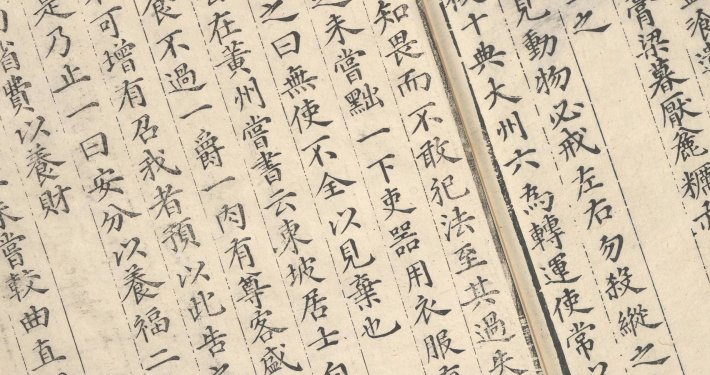 粱暮厭麄糲
之
見動物必戒左右勿殺縱之
十典大州六為轉運使常
知畏而不敢犯法至其過失
之未嘗黜一下吏器用衣服
之曰無使不全以見棄也
在黃州嘗書云東坡居士
食不過一爵一肉有尊客盛
可增有召我者預以此告
是乃止一曰安分以養福二
省費以養財
嘗較曲直